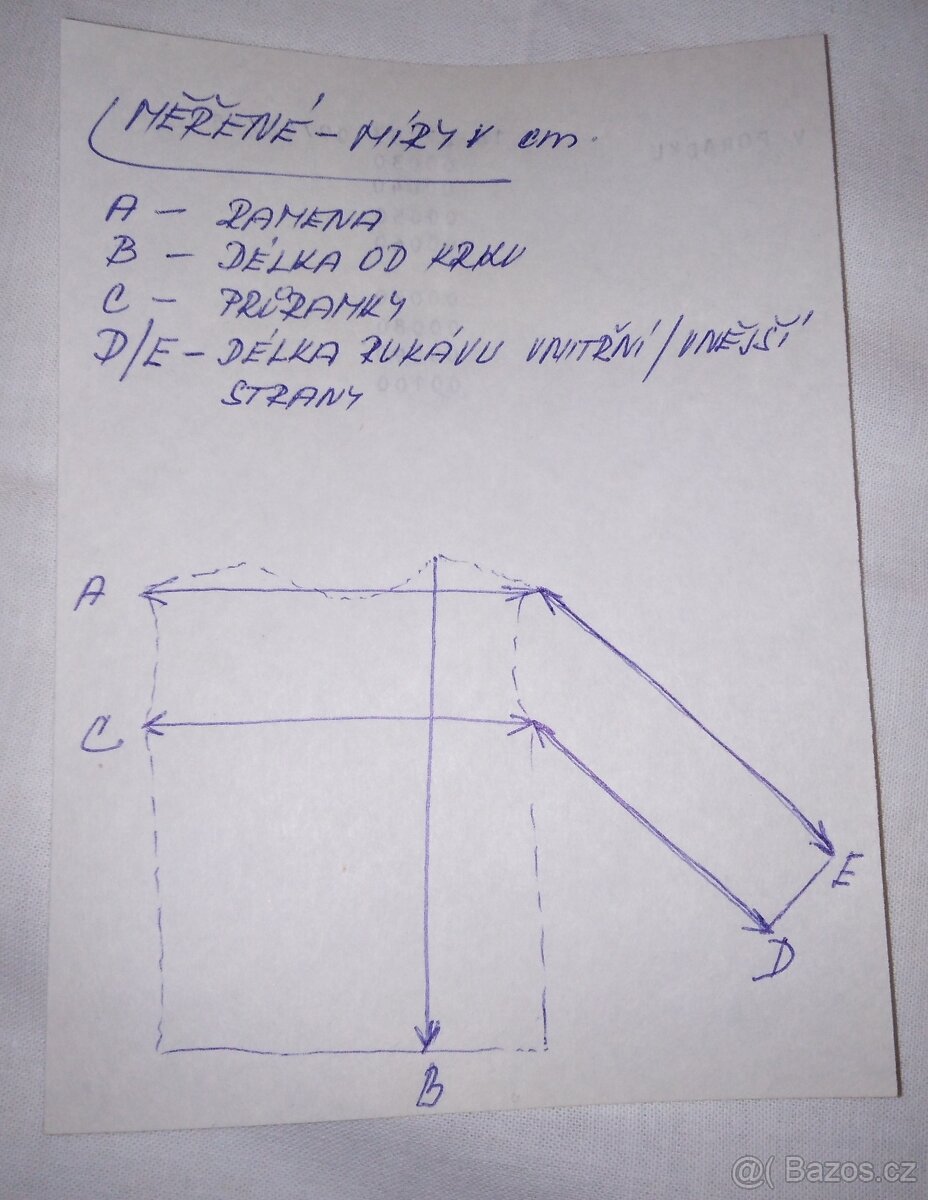 MĚŘENÉ - MÍRY V cm.
A - RAMENA
B - DÉLKA OD KRKU
C - PRŮRAMKY
D/E - DÉLKA RUKÁVU VNITŘNÍ/VNĚJŠÍ
STRANY
A
C
E
D
B
@( Bazos.cz